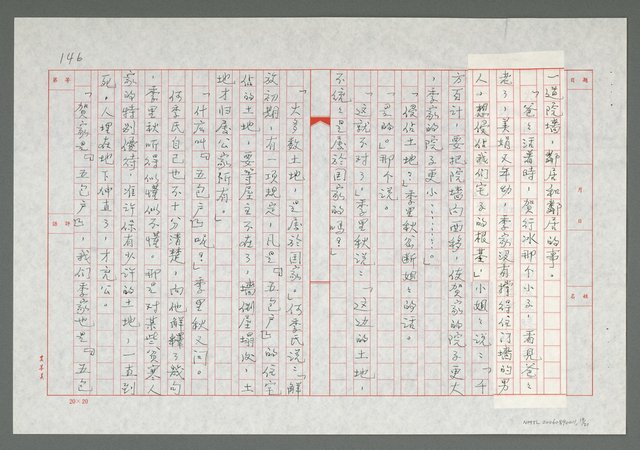 146
一道院墻，鄰居和鄰居的事。
「爸々活着時，賀行冰那个小子，看見爸々
老了，美娟又年幼，季家沒有撑得住门墻的男
人，想侵佔我们宅子的根基」小姐々說：「千
方百计，要把院墻向西移，使賀家的院子更大
，季家的院子更小……。」
「侵佔土地？」季里秋岔断姐々的话。
「是的。」那个說。
「这就不对了！」季里秋說：「这边的土地，
不統々是屬於国家的嗎？」
「大多数土地，是屬於国家。」何季氏說：「解
放初期，有一項規定，凡是『五包户』的住宅
佔的土地，要等屋主不在了，墻倒屋塌後，土
地才归屬公家所有。」
「什么叫『五包户』呢？」季里秋又问。
何季氏自己也不十分清楚，向他解釋了幾句
，季里秋听得似懂似不懂。那是对某些貧寒人
家的特别優待，准許保有少許的土地，一直到
死，人埋在地下伸直了，才充公。
「賀家是『五包户』，我们季家也是『五包
20×20